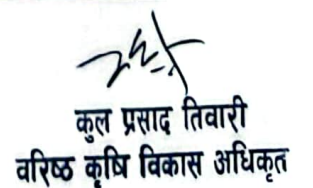 कुल प्रसाद तिवारी
वरिष्ठ कृषि विकास अधिकृत